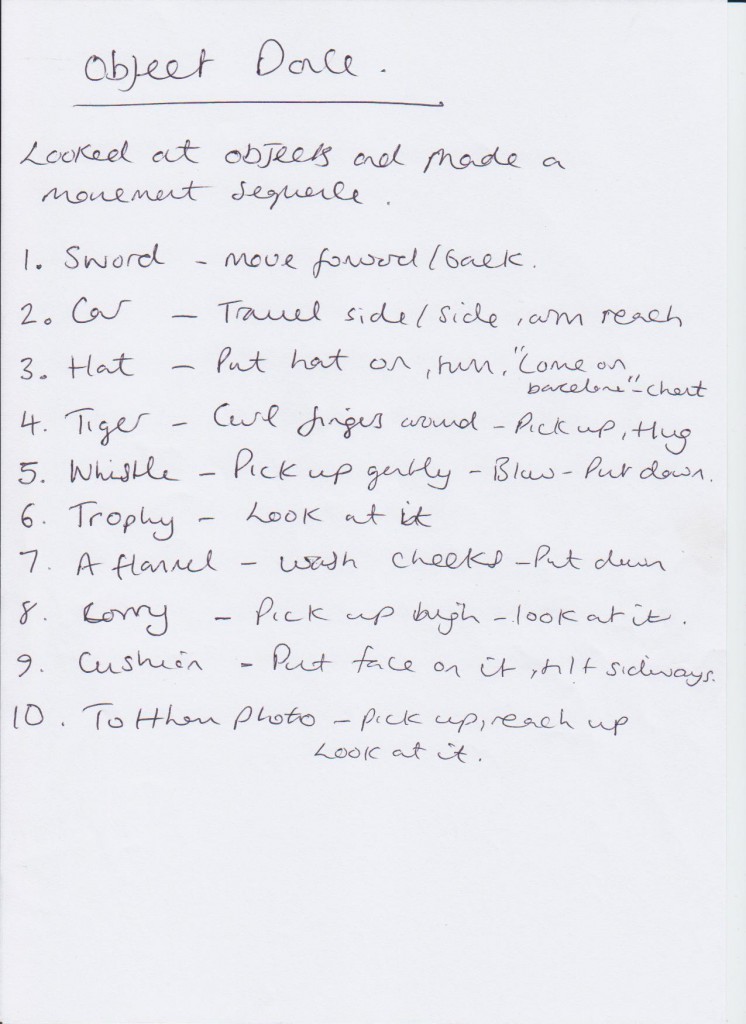 Object Dance.
Looked at objects and made a
movement sequence.
1. Sword - move forward/back.
2. Car - Travel side/side, arm reach
3. Hat - Put hat on, turn, "Come on
barcelona" - chant
4. Tiger - Curl fingers around - Pick up, Hug
5. Whistle - Pick up gently - Blow - Put down.
6. Trophy - Look at it
7. A flannel - wash cheeks - Put down
8. Lorry - Pick up high - look at it.
9. Cushion - Put face on it, tilt sideways.
10. Tottenham Photo - pick up, reach up
Look at it.